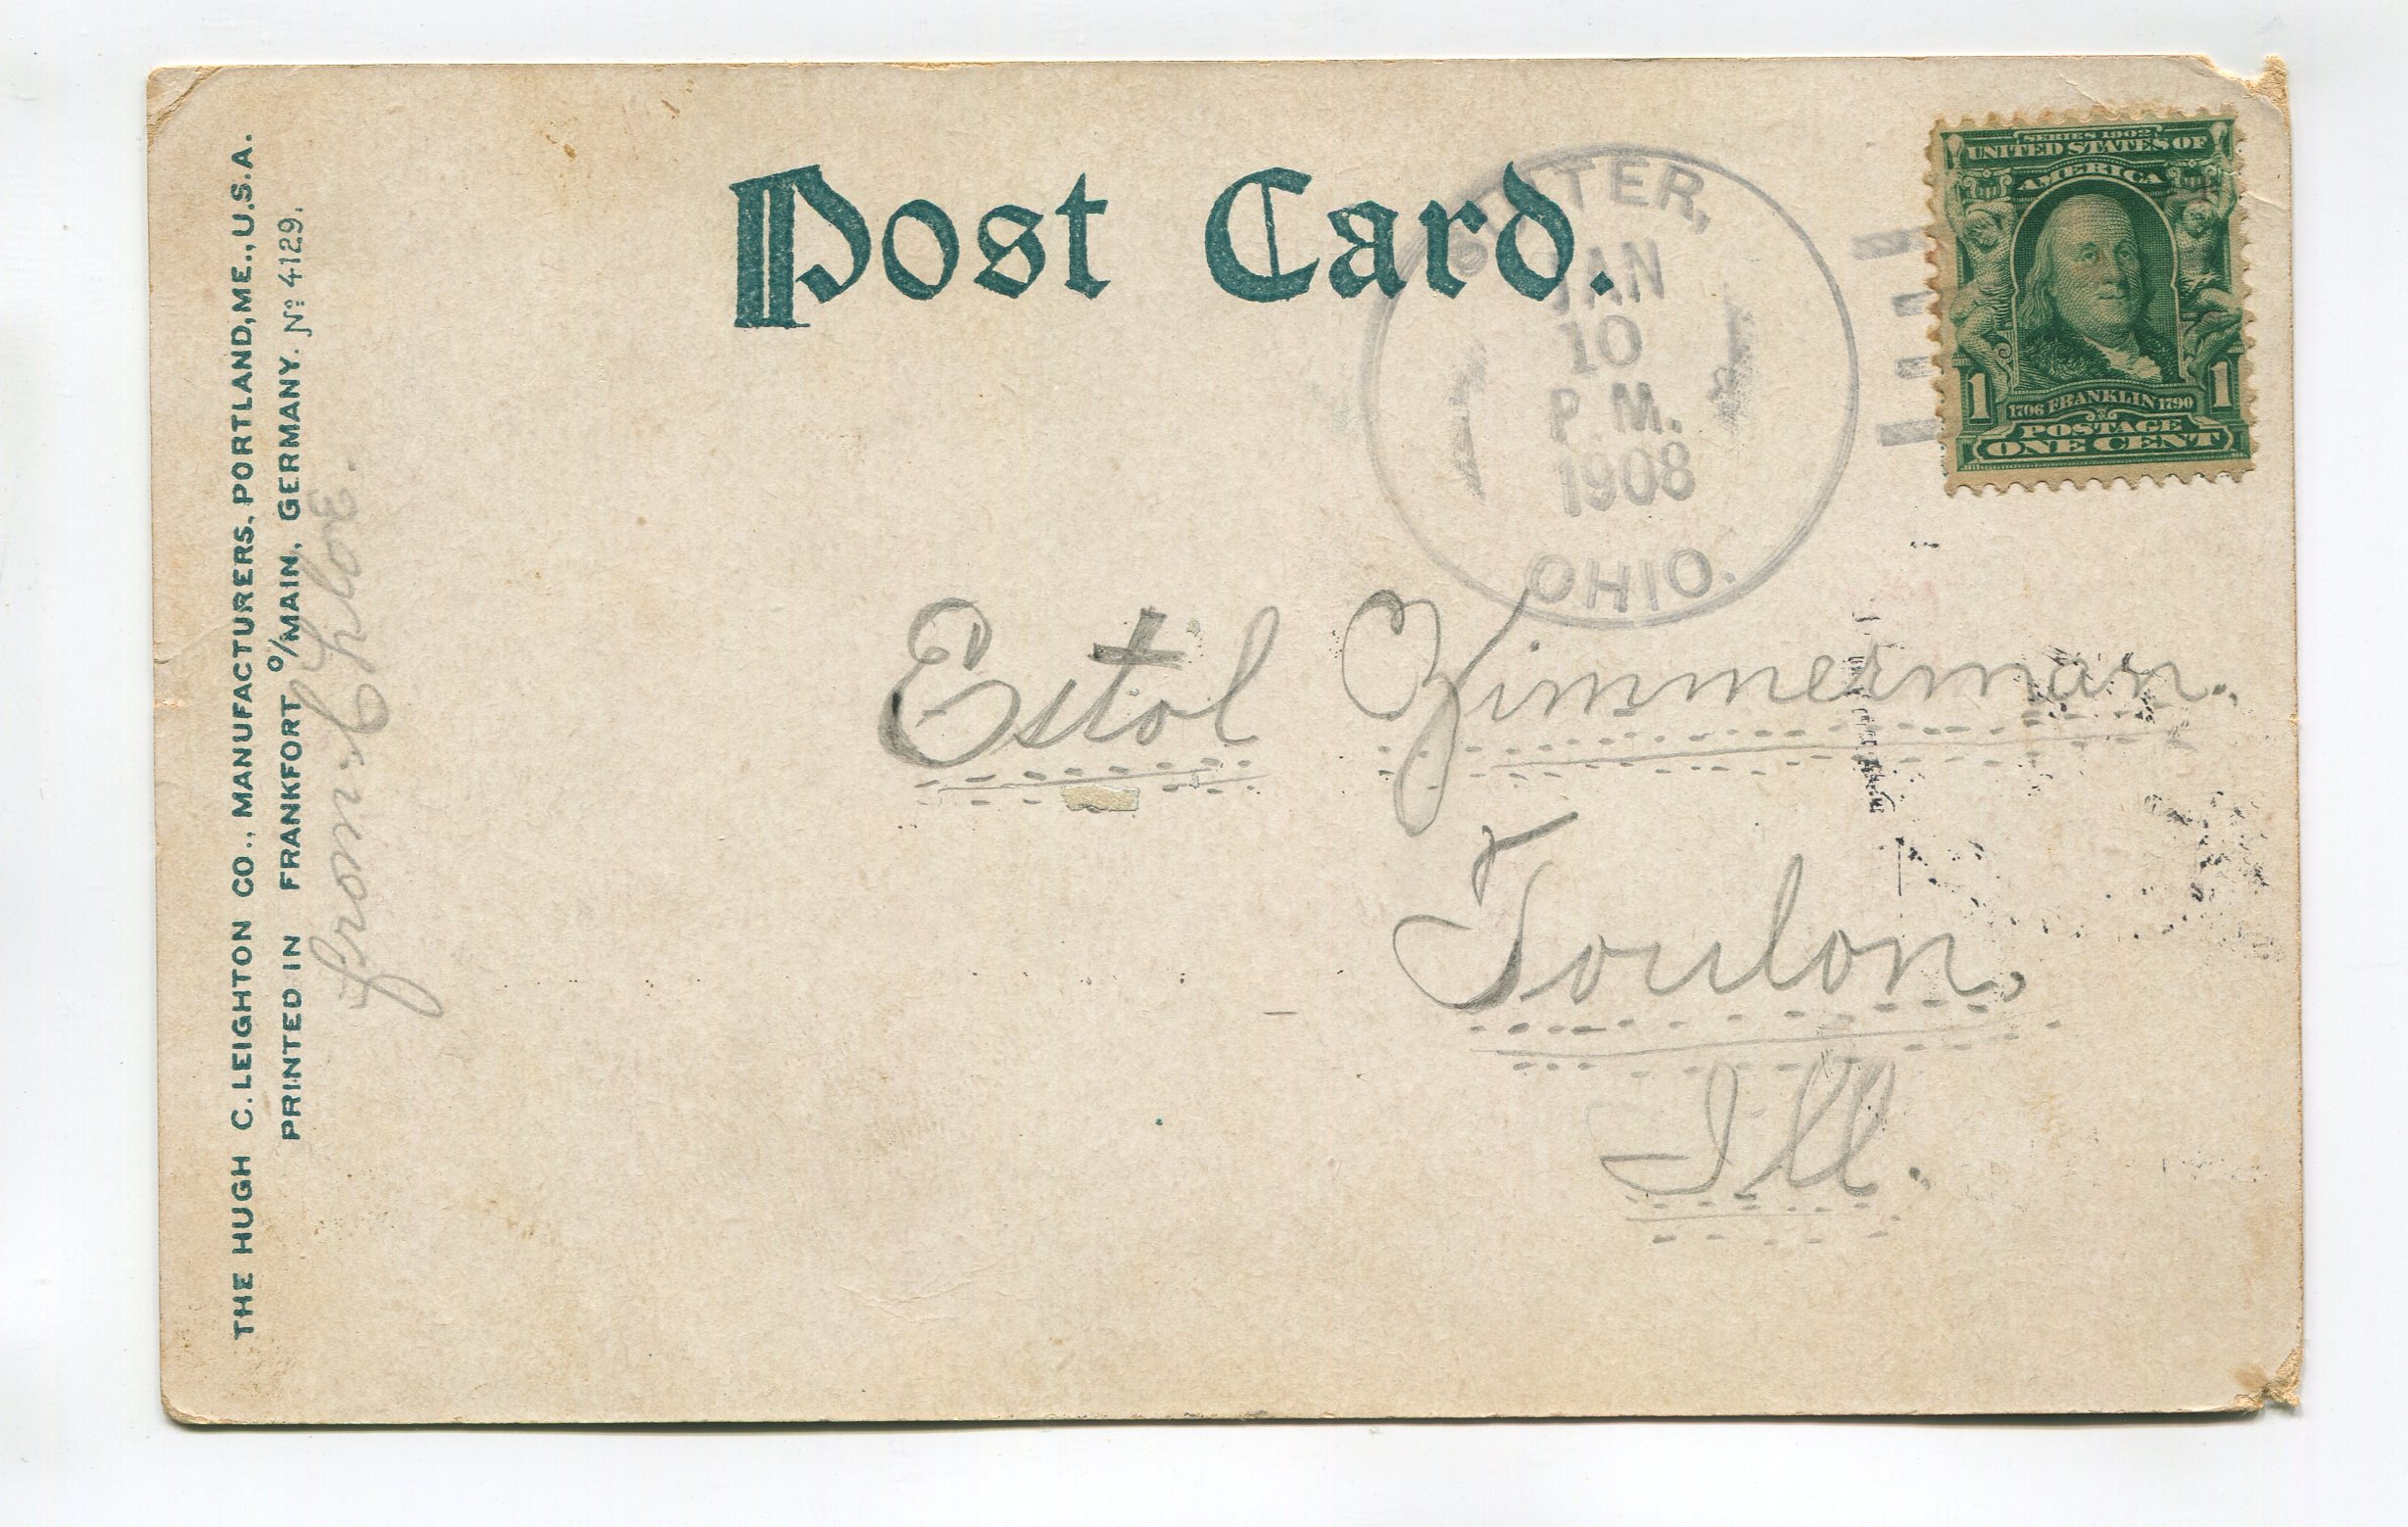 Post Card.
JAN
10
P.M.
1908
OHIO.
SERIES 1902
UNITED STATES OF
AMERICA
1 1
1706 FRANKLIN 1790
POSTAGE
ONE CENT
Estol Zimmerman.
Toulon,
Ill.
THE HUGH C. LEIGHTON CO., MANUFACTURERS, PORTLAND, ME., U.S.A.
PRINTED IN FRANKFORT o/MAIN, GERMANY. No 4129.
from Chloe.